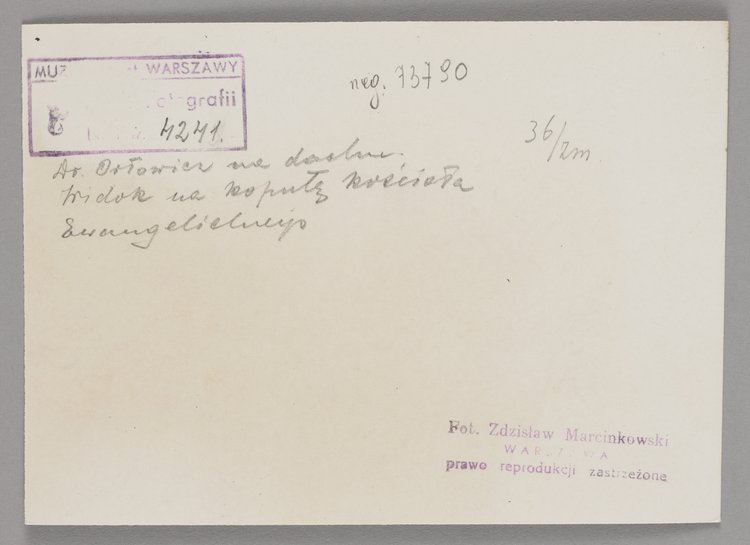 WARSZAWY
4241.
neg. 73790
36/zm.
Dr. Orłowicz na dachu.
Widok na kopułę kościoła
Ewangelickiego
Fot. Zdzisław Marcinkowski
WARSZAWA
prawo reprodukcji zastrzeżone